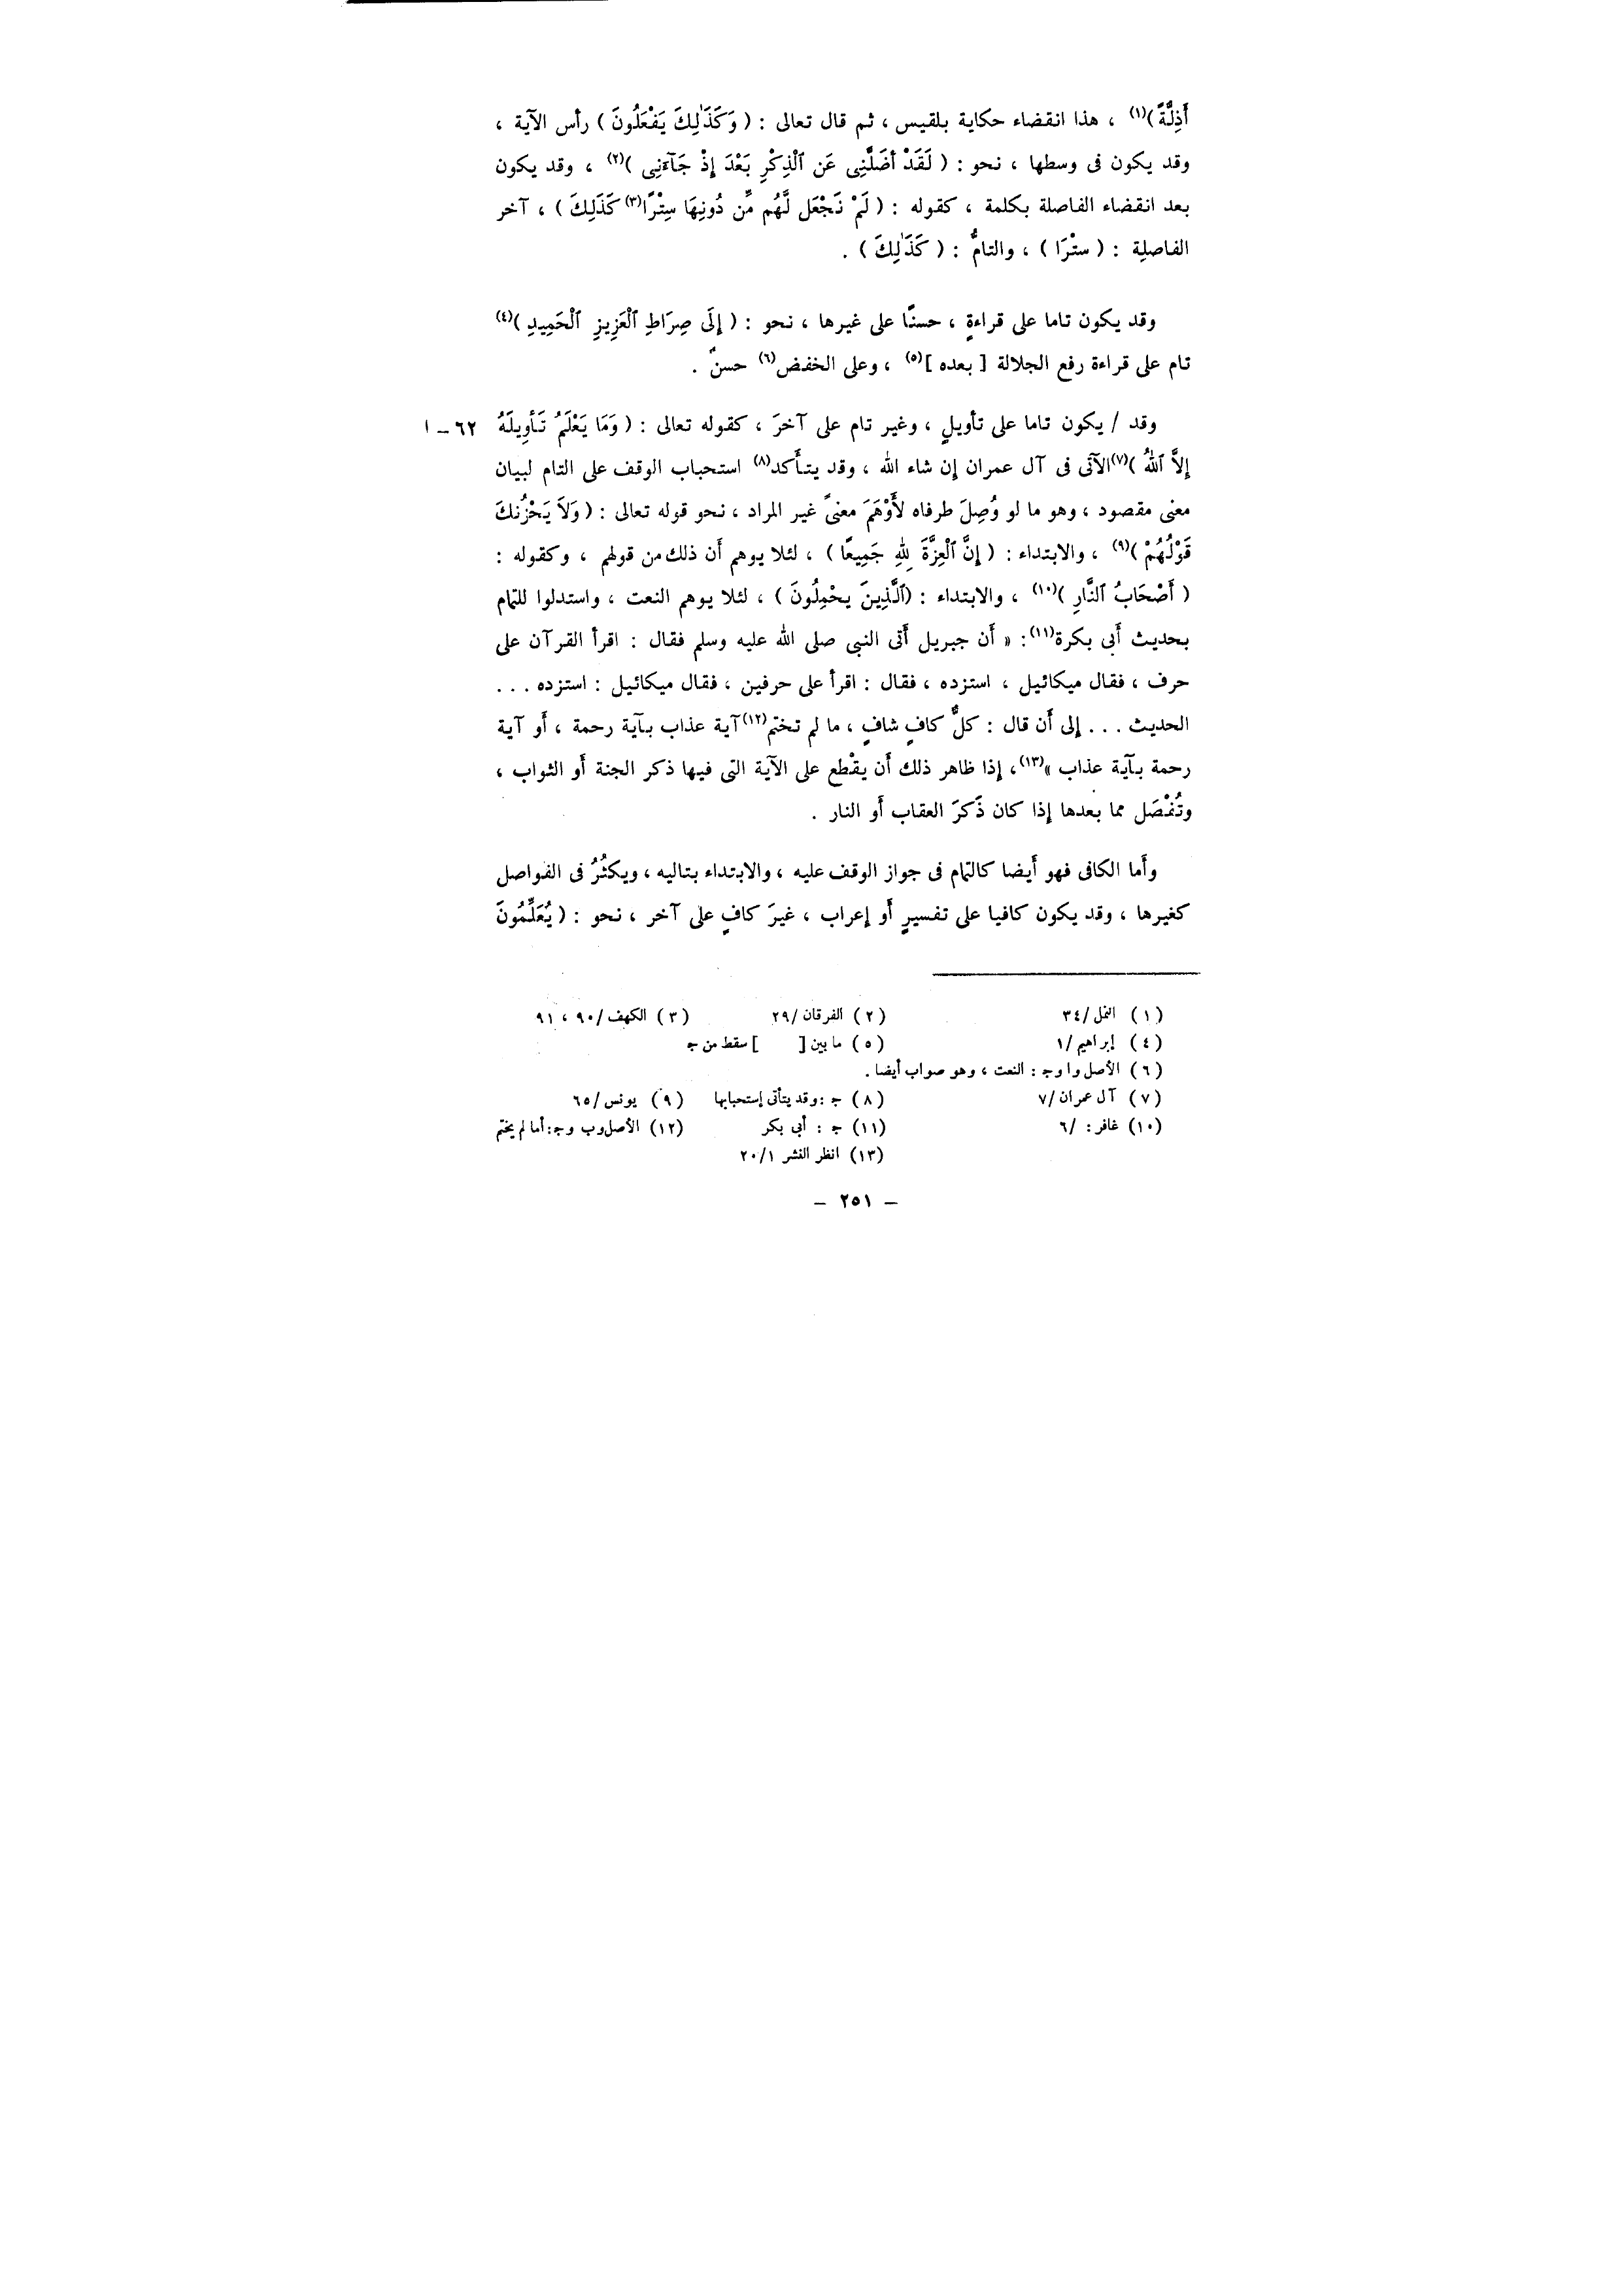 أَذِلَّةً )(١) ، هذا انقضاء حكاية بلقيس ، ثم قال تعالى : ( وَكَذَٰلِكَ يَفْعَلُونَ ) رأس الآية ،
وقد يكون فى وسطها ، نحو : ( لَقَدْ أَضَلَّنِى عَنِ ٱلْذِكْرِ بَعْدَ إِذْ جَآءَنِى )(٢) ، وقد يكون
بعد انقضاء الفاصلة بكلمة ، كقوله : ( لَمْ نَجْعَل لَّهُم مِّن دُونِهَا سِتْرًا(٣) كَذَلِكَ ) ، آخر
الفاصلة : ( سِتْرَا ) ، والتامُّ : ( كَذَٰلِكَ ) .
وقد يكون تاما على قراءةٍ ، حسنًا على غيرها ، نحو : ( إِلَى صِرَاطِ ٱلْعَزِيزِ ٱلْحَمِيدِ )(٤)
تام على قراءة رفع الجلالة [ بعده ](٥) ، وعلى الخفض(٦) حسنٌ .
وقد / يكون تاما على تأويلٍ ، وغير تام على آخرَ ، كقوله تعالى : ( وَمَا يَعْلَمُ تَأوِيلَهُ ٦٢ – ا
إِلاَّ ٱللهُ )(٧) الآتى فى آل عمران إن شاء الله ، وقد يتأَكد(٨) استحباب الوقف على التام لبيان
معنى مقصود ، وهو ما لو وُصِلَ طرفاه لأَوْهَمَ معنىً غير المراد ، نحو قوله تعالى : ( وَلاَ يَحْزُنكَ
قَوْلُهُمْ )(٩) ، والابتداء : ( إِنَّ ٱلْعِزَّةَ لِلهِ جَمِيعًا ) ، لئلا يوهم أَن ذلك من قولهم ، وكقوله :
( أَصْحَابُ ٱلنَّارِ )(١٠) ، والابتداء : (ٱلَّذِينَ يحْمِلُونَ ) ، لئلا يوهم النعت ، واستدلوا للتمام
بحديث أَبى بكرة(١١) : « أَن جبريل أَتى النبى صلى الله عليه وسلم فقال : اقرأ القرآن على
حرف ، فقال ميكائيل ، استزده ، فقال : اقرأ على حرفين ، فقال ميكائيل : استزده . . .
الحديث . . . إلى أَن قال : كلٌّ كافٍ شافٍ ، ما لم تختم(١٢) آية عذاب بآية رحمة ، أَو آية
رحمة بآية عذاب »(١٣) ، إذا ظاهر ذلك أَن يقْطع على الآية التى فيها ذكر الجنة أَو الثواب ،
وتُفْصَل مما بعدها إذا كان ذَكَرَ العقاب أَو النار .
وأَما الكافى فهو أَيضا كالتمام فى جواز الوقف عليه ، والابتداء بتاليه ، ويكثُرُ فى الفواصل
كغيرها ، وقد يكون كافيا على تفسيرٍ أَو إعراب ، غيرَ كافٍ على آخر ، نحو : ( يُعَلِّمُونَ
(١) النمل/٣٤ (٢) الفرقان/٢٩ (٣) الكهف/٩٠ ، ٩١
(٤) إبراهيم/١ (٥) ما بين [ ] سقط من ج
(٦) الأصل وا وج : النعت ، وهو صواب أيضا .
(٧) آل عمران/٧ (٨) ج : وقد يتأتى إستحبابها (٩) يونس/٦٥
(١٠) غافر : /٦ (١١) ج : أبى بكر (١٢) الأصل وب وج : أما لم يختم
(١٣) انظر النشر ٢٠/١
– ٢٥١ –